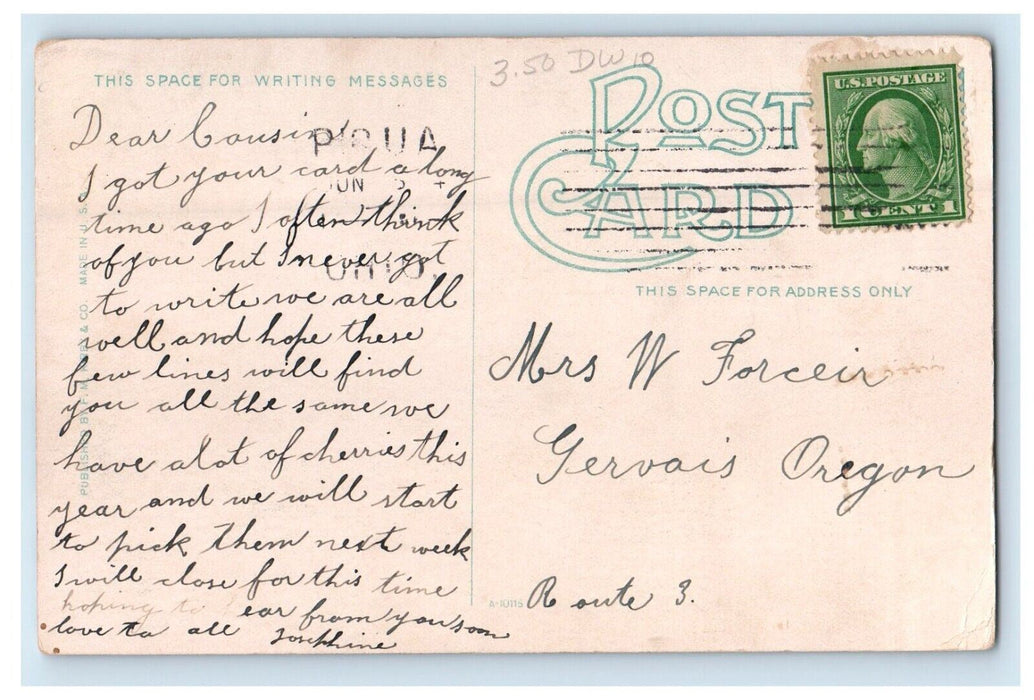 THIS SPACE FOR WRITING MESSAGES
Dear Cousin
I got your card a long
time ago I often think
of you but I never got
to write we are all
well and hope these
few lines will find
you all the same we
have a lot of cherries this
year and we will start
to pick them next week
I will close for this time
hoping to ear from you soon
love to all Josephine
PIQUA
JUN
OHIO.
3.50 DW10
POST
CARD
U.S. POSTAGE
1 CENT 1
THIS SPACE FOR ADDRESS ONLY
Mrs W Forceir
Gervais Oregon
Route 3.
A-10115
PUBLISHED BY & CO. MADE IN U.S.